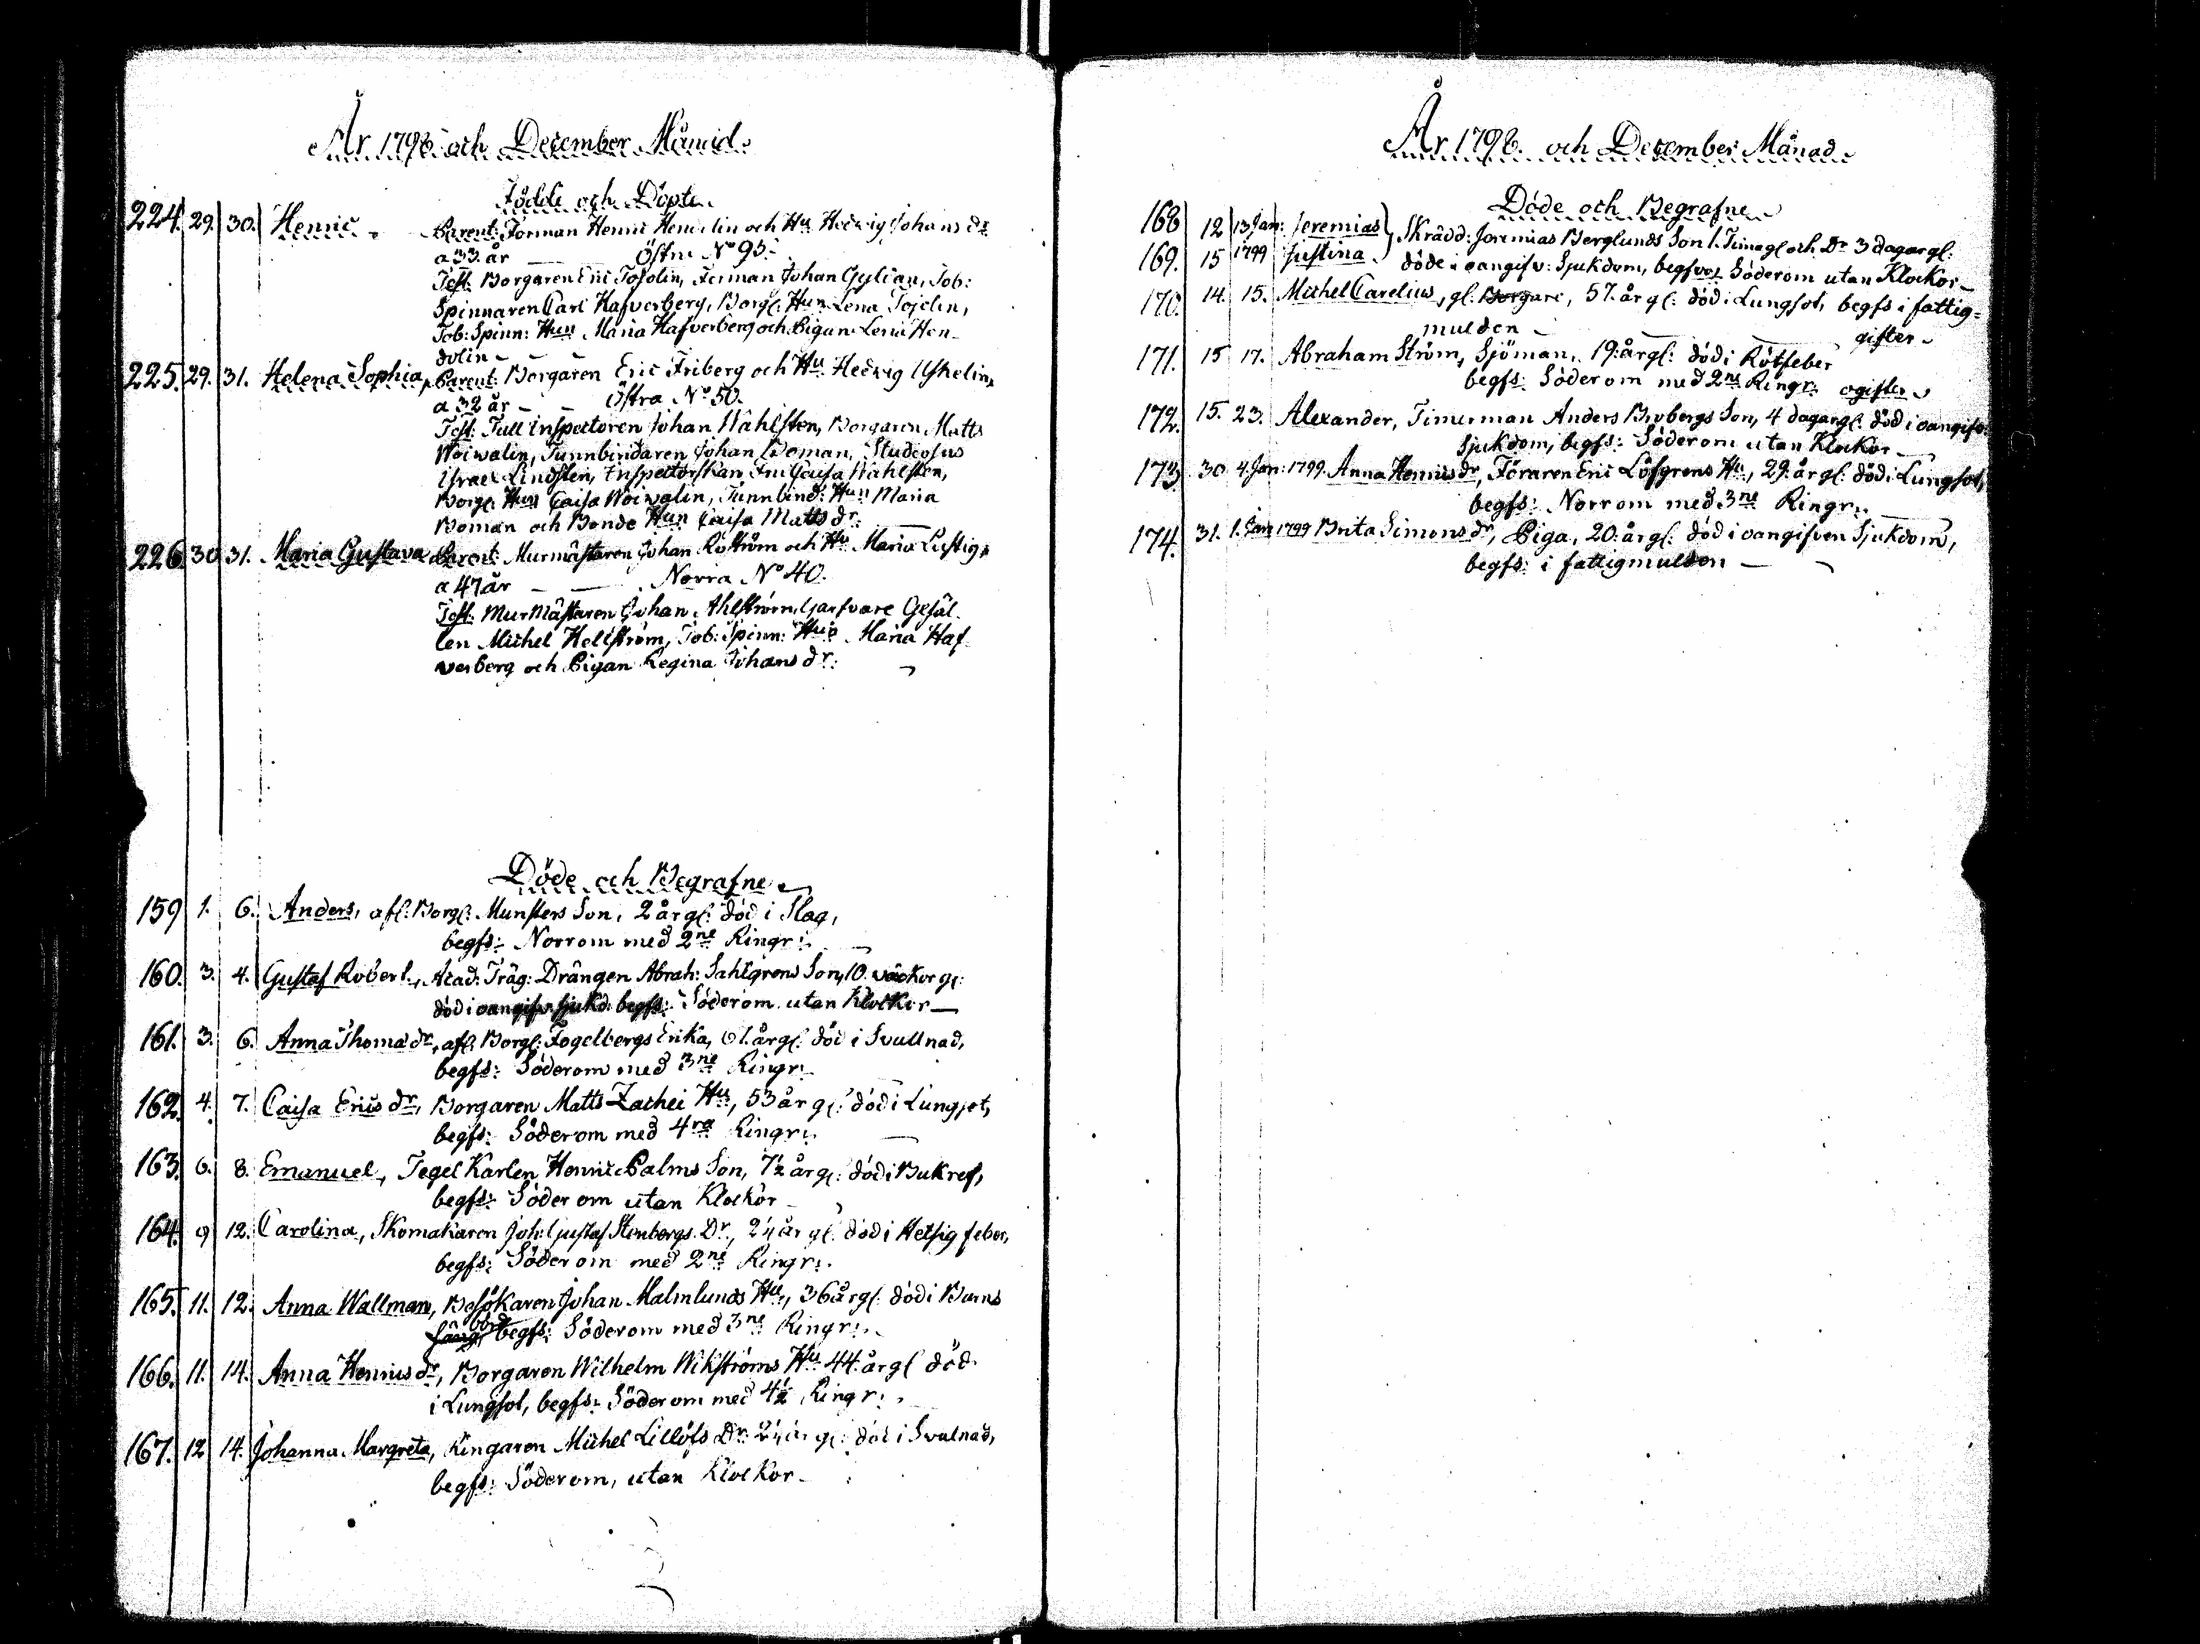 År 1798 och December Månad
Födde och Döpte
224. 29. 30. Henric Parent: Forman Henric Hendelin och Hu Hedvig Johansdr
a 33 år Östra No 95.
Test: Borgaren Eric Tojolin, Forman Johan Gylian, Tob:
Spinnaren Carl Hafverberg, Borgl: Hun Lena Tojelin,
Tob: Spinn: Hun Maria Hafverberg och Pigan Lena Hen-
dolin
225. 29. 31. Helena Sophia, Parent: Borgaren Eric Friberg och Hu Hedvig Uskelin
a 32 år Östra No 50.
Test: Tull Inspectoren Johan Wahlsten, Borgaren Matts
Woiwalin, Tunnbindaren Johan Boman, Studiosus
Israel Lindsten, Inspectorskan Fru Caisa Wahlsten,
Borgl: Hun Caisa Woiwalin, Tunnbind: Hun Maria
Boman och Bonde Hun Caisa Mattsdr:
226. 30. 31. Maria Gustava Parent: Murmästaren Johan Röström och Hu Maria Lustig
a 47 år Norra No 40.
Test: MurMästaren Johan Ahlström, Garfvare Gesäl
len Michel Hellström, Tob: Spinn: Hun Maria Haf
verberg och Pigan Regina Johansdr:
Döde och Begrafne
159 1. 6. Anders, afl: Borgl: Munsters Son, 2 år gl: död i Slag,
begfs: Norrom med 2ne Ringr:
160. 3. 4. Gustaf Robert, Acad: Träg: Drängen Abrah: Sahlgrens Son, 10 väckor gl:
död i oangifn sjukd: begfs: Söderom utan Klockor
161. 3. 6. Anna Thomædr, afl: Borgl: Fogelbergs Enka, 61 år gl: död i Svullnad,
begfs: Söderom med 3ne Ringr:
162. 4. 7. Caisa Ericsdr, Borgaren Matts Zachei Hu, 53 år gl: död i Lungsot,
begfs: Söderom med 4ra Ringr:
163. 6. 8. Emanuel, Tegel Karlen Henric Palms Son, 7½ år gl: död i Bukref,
begfs: Söder om utan Klockor
164. 9 12. Carolina, Skomakaren Joh: Gustaf Stenbergs Dr, 2¼ år gl: död i Hetsig feber,
begfs: Söder om med 2ne Ringr:
165. 11. 12. Anna Wallman, Besökaren Johan Malmlunds Hu, 36 år gl: död i Barns
börd begfs: Söderom med 3ne Ringr:
166. 11. 14. Anna Henricsdr, Borgaren Wilhelm Wikströms Hu 44. år gl död
i Lungsot, begfs: Söder om med 4½ Ringr:
167. 12 14. Johanna Margreta, Ringaren Michel Lillöfs Dr 2¼ år gl: död i Svalnad,
begfs: Söderom, utan Klockor
År 1798. och December Månad
Döde och Begrafne
168 12 13 Jan: Jeremias } Skrädd: Jeremias Berglunds Son 1. Tima gl och Dr 3 dagar gl:
169. 15 1799 Justina döde i oangifv: Sjukdom, begfves Söderom utan Klockor
170. 14. 15. Michel Carelius, gl: Borgare, 57. år gl: död i Lungsot, begfs i fattig-
mulden gifter
171. 15 17. Abraham Ström, Sjöman, 19: år gl: död i Rötfeber
begfs: Söder om med 2ne Ringr: ogifter
172. 15. 23. Alexander, Timerman Anders Brobergs Son, 4 dagar gl: död i oangifv:
Sjukdom, begfs: Söder om utan Klockor
173 30 4. Jan: 1799. Anna Henricsdr, Föraren Eric Löfgrens Hu, 29: år gl: död i Lungsot,
begfs: Norrom med 3ne Ringr:
174. 31. 1. Jan 1799 Brita Simonsdr, Piga, 20: år gl: död i oangifven Sjukdom,
begfs: i fattigmulden